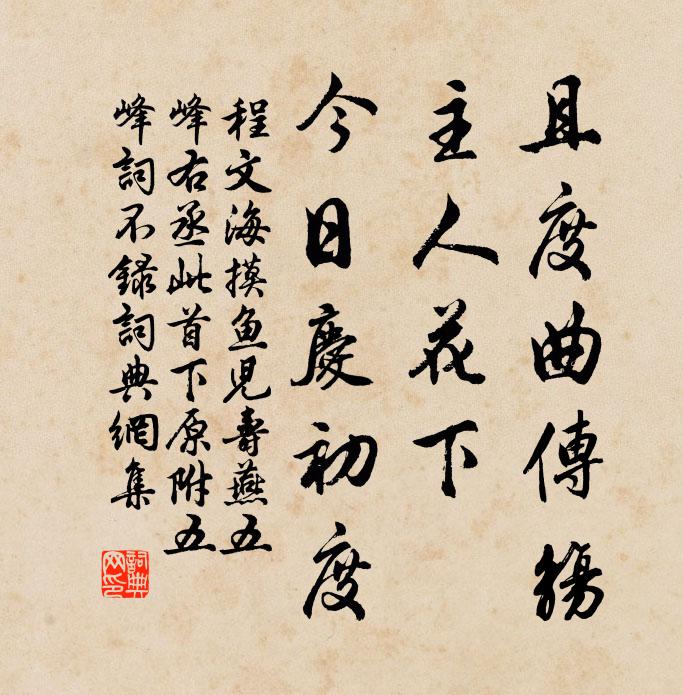 且度曲傳觴
主人花下
今日慶初度
程文海摸鱼児壽燕五
峰右丞此首下原附五
峰詞不錄詞典網集
詞典网印